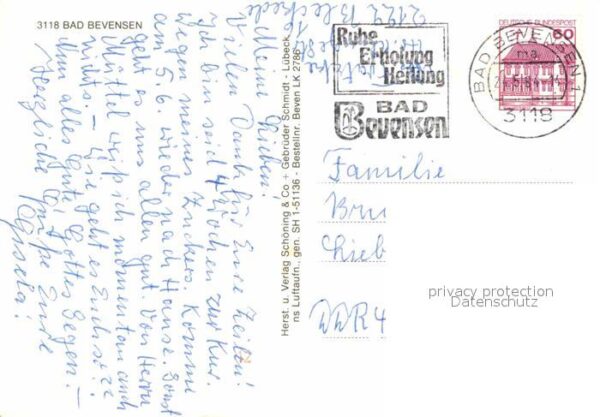 3118 BAD BEVENSEN
Meine Lieben!
Vielen Dank für Eure Zeilen!
Ich bin seid 4 Wochen zur Kur.
wegen meines Zuckers. Komme
am 5.6. wieder nach Hause. Sonst
geht es uns allen gut. Von Herrn
weiß ich momentan auch
nichts. – Wie geht es Euch?
Nun alles Gute! Gottes Segen! –
Herzliche Grüße Eure
Gisela!
Herst. u. Verlag Schöning & Co + Gebrüder Schmidt - Lübeck
ns Luftaufn., gen. SH 1-51136 - Bestellnr. Beven LK 2786
2122 Bleckede
Ruhe
Erholung
Heilung
BAD
Bevensen
DEUTSCHE BUNDESPOST
60
BAD BEVENSEN 1
3118
Familie
Bru
Lieb
DDR 4
privacy protection
Datenschutz